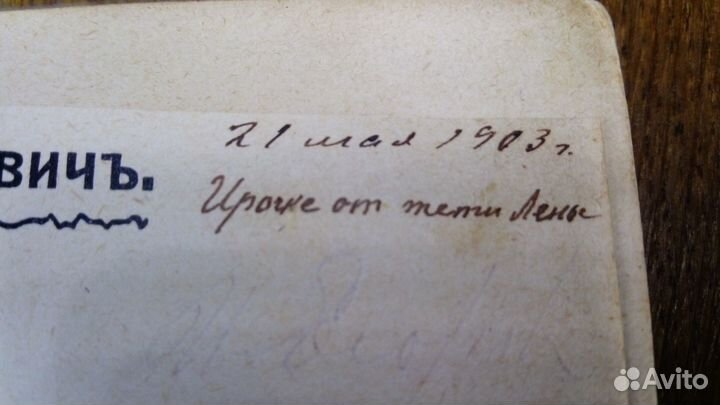 21 мая 1903 г.
ВИЧЪ.
Ирочке от тети Лены
Avito